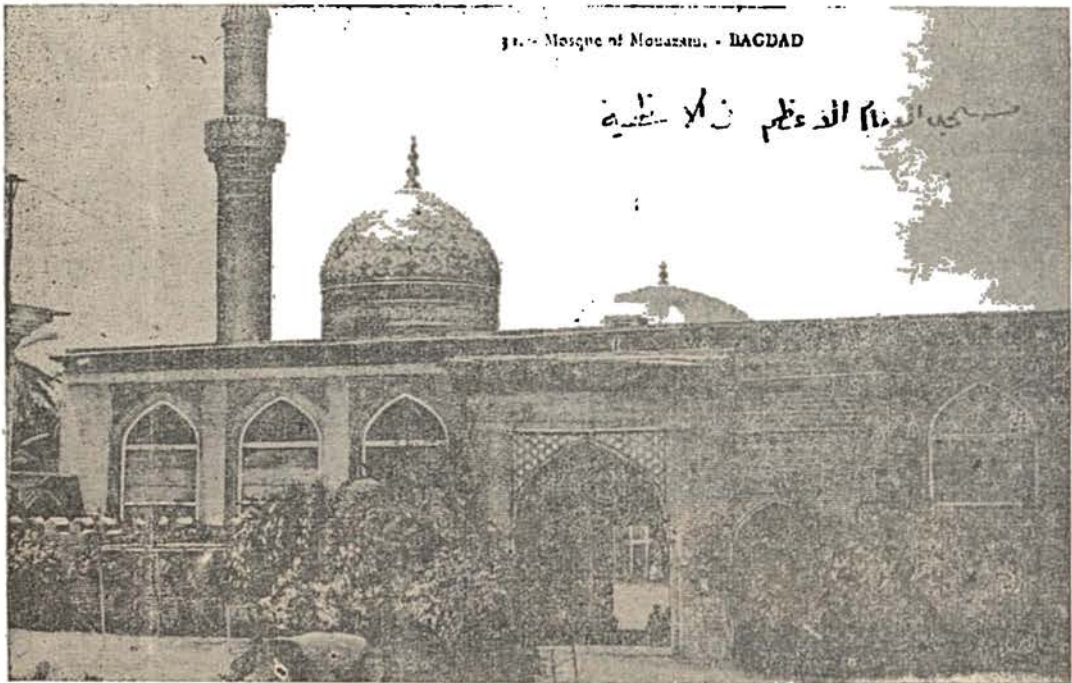 31. - Mosque of Mouazam. - BAGDAD
الامام الاعظم في الاعظمية